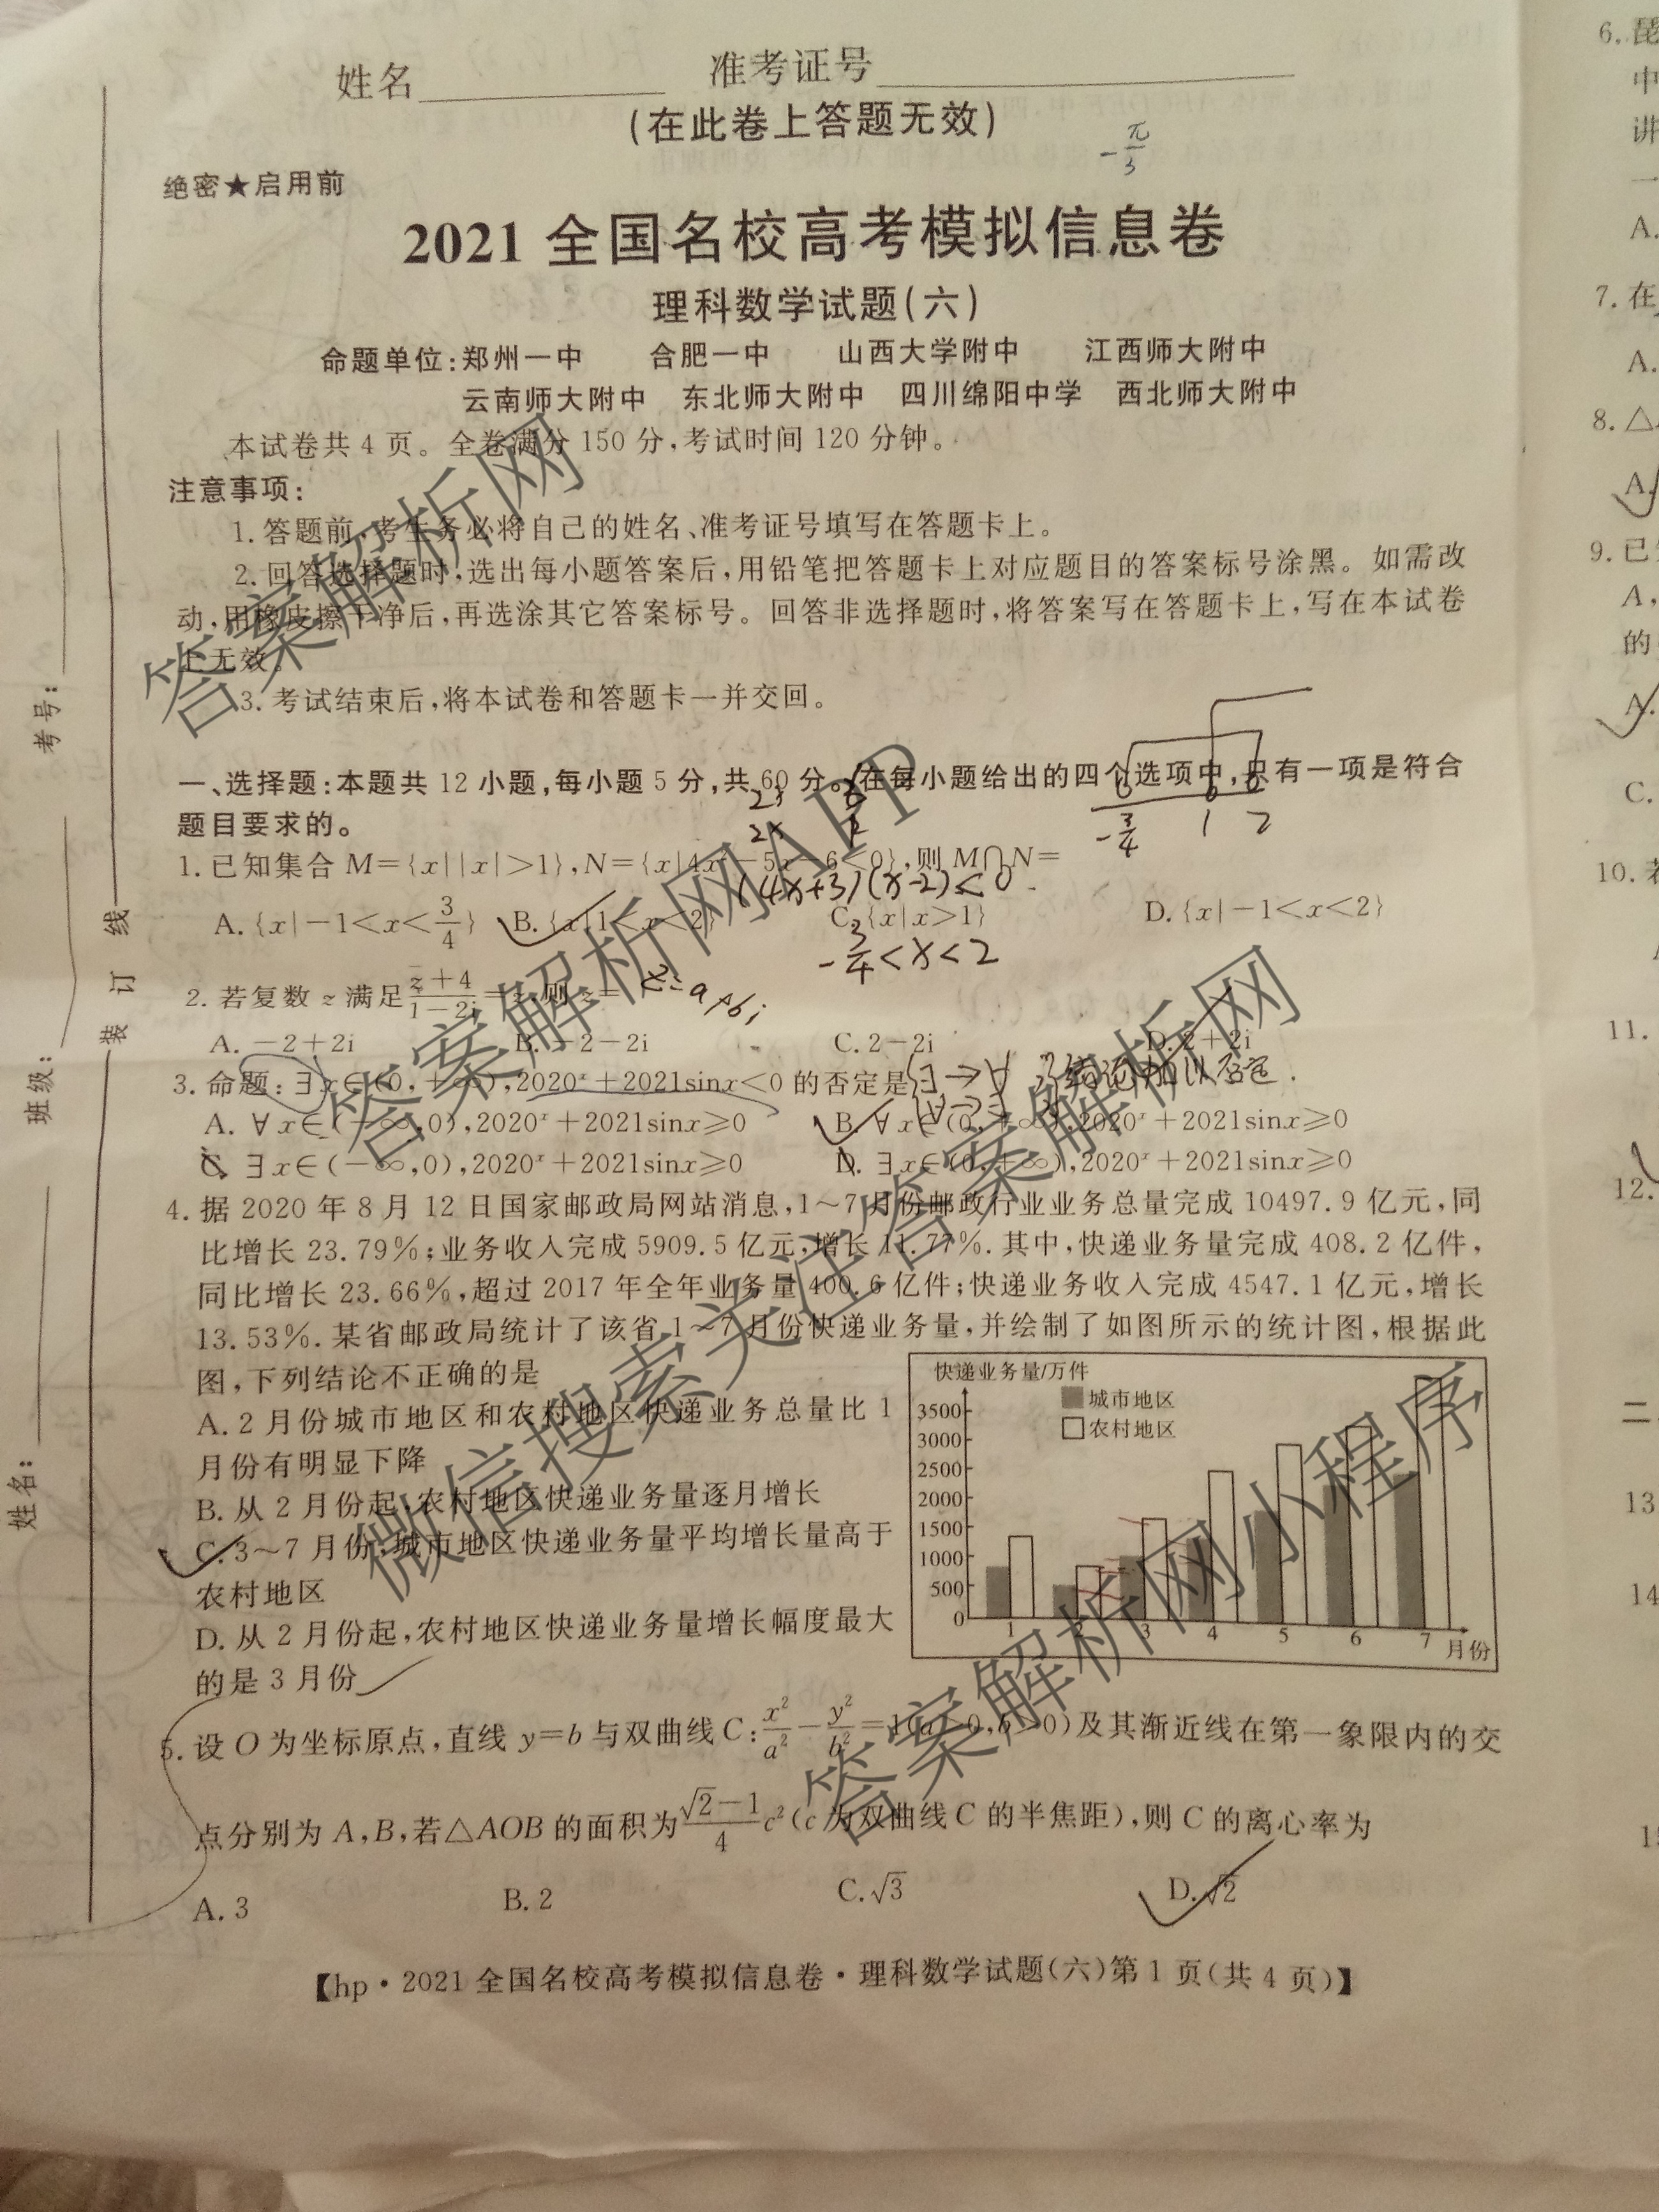 姓名 准考证号
(在此卷上答题无效)
-π/3
绝密★启用前
2021 全国名校高考模拟信息卷
理科数学试题(六)
命题单位:郑州一中 合肥一中 山西大学附中 江西师大附中
云南师大附中 东北师大附中 四川绵阳中学 西北师大附中
本试卷共 4 页。全卷满分 150 分,考试时间 120 分钟。
注意事项:
1. 答题前,考生务必将自己的姓名、准考证号填写在答题卡上。
2. 回答选择题时,选出每小题答案后,用铅笔把答题卡上对应题目的答案标号涂黑。如需改
动,用橡皮擦干净后,再选涂其它答案标号。回答非选择题时,将答案写在答题卡上,写在本试卷
上无效。
3. 考试结束后,将本试卷和答题卡一并交回。
一、选择题:本题共 12 小题,每小题 5 分,共 60 分。在每小题给出的四个选项中,只有一项是符合
题目要求的。
-3/4 1 2
1. 已知集合 M={x||x|>1},N={x|4x²-5x-6<0},则 M∩N=
(4x+3)(x-2)<0
A. {x|-1<x<3/4} B. {x|1<x<2} C. {x|x>1} D. {x|-1<x<2}
-3/4<x<2
2. 若复数 z 满足 (z̄+4)/(1-2i)=z,则 z=
z=a+bi
A. -2+2i B. -2-2i C. 2-2i D. 2+2i
3. 命题:∃x∈(0,+∞),2020ˣ+2021sinx<0 的否定是
A. ∀x∈(-∞,0),2020ˣ+2021sinx≥0 B. ∀x∈(0,+∞),2020ˣ+2021sinx≥0
C. ∃x∈(-∞,0),2020ˣ+2021sinx≥0 D. ∃x∈(0,+∞),2020ˣ+2021sinx≥0
4. 据 2020 年 8 月 12 日国家邮政局网站消息,1~7 月份邮政行业业务总量完成 10497.9 亿元,同
比增长 23.79%;业务收入完成 5909.5 亿元,增长 11.77%. 其中,快递业务量完成 408.2 亿件,
同比增长 23.66%,超过 2017 年全年业务量 400.6 亿件;快递业务收入完成 4547.1 亿元,增长
13.53%. 某省邮政局统计了该省 1~7 月份快递业务量,并绘制了如图所示的统计图,根据此
图,下列结论不正确的是
A. 2 月份城市地区和农村地区快递业务总量比 1
月份有明显下降
B. 从 2 月份起,农村地区快递业务量逐月增长
C. 3~7 月份,城市地区快递业务量平均增长量高于
农村地区
D. 从 2 月份起,农村地区快递业务量增长幅度最大
的是 3 月份
快递业务量/万件
城市地区
农村地区
3500
3000
2500
2000
1500
1000
500
0
1 2 3 4 5 6 7 月份
5. 设 O 为坐标原点,直线 y=b 与双曲线 C:x²/a²-y²/b²=1(a>0,b>0)及其渐近线在第一象限内的交
点分别为 A,B,若△AOB 的面积为 (√2-1)/4 c²(c 为双曲线 C 的半焦距),则 C 的离心率为
A. 3 B. 2 C. √3 D. √2
【hp·2021 全国名校高考模拟信息卷·理科数学试题(六)第 1 页(共 4 页)】
考号:
班级:
姓名:
装 订 线
答案解析网
答案解析网APP
微信搜索关注答案解析网
答案解析网小程序
6. 琵
中
讲
一
A.
7. 在
A.
8. △
A.
9. 已
A,
的
A.
C.
10. 若
11.
12.
二
13
14